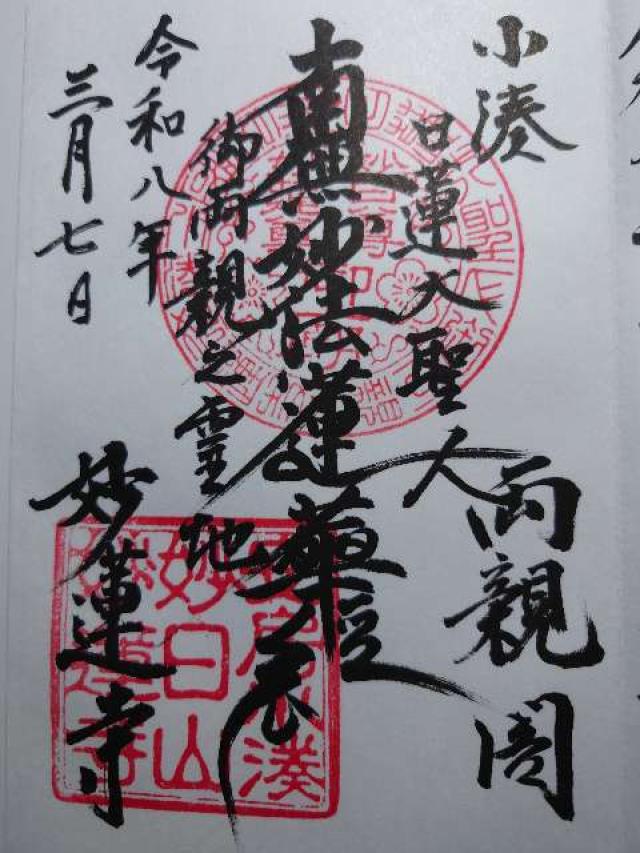 小湊
両親閣
日蓮大聖人
南無妙法蓮華経
御両親之霊地
令和八年
三月七日
妙蓮寺
妙日山
妙蓮寺